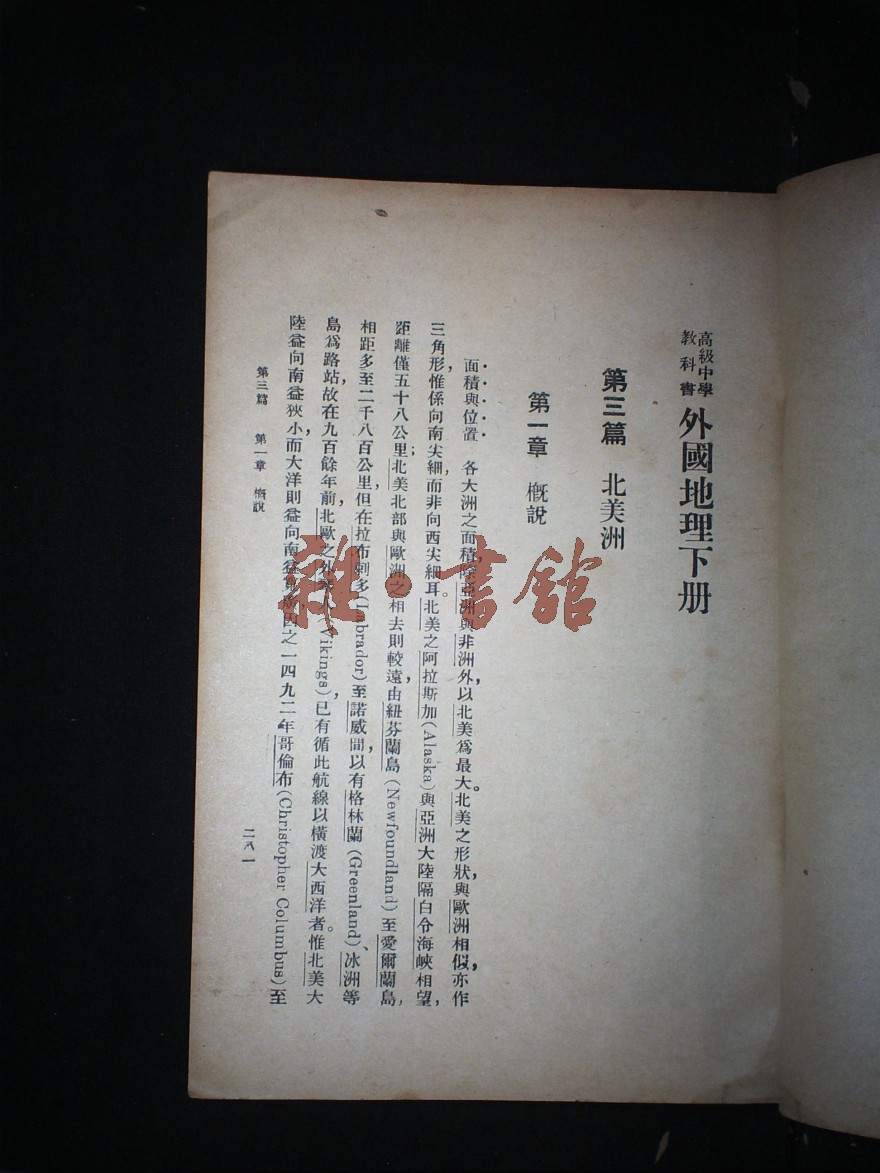 高級中學
教科書
外國地理下册
第三篇　北美洲
第一章　概說
面積與位置　各大洲之面積，除亞洲與非洲外，以北美爲最大。北美之形狀，與歐洲相似，亦作
三角形，惟係向南尖細，而非向西尖細耳。北美之阿拉斯加(Alaska)與亞洲大陸隔白令海峽相望，
距離僅五十八公里；北美北部與歐洲之相去則較遠，由紐芬蘭島(Newfoundland)至愛爾蘭島，
相距多至二千八百公里，但在拉布剌多(Labrador)至諾威間，以有格林蘭(Greenland)、冰洲等
島爲路站，故在九百餘年前，北歐之外人(Vikings)，已有循此航線以橫渡大西洋者。惟北美大
陸益向南益狹小，而大洋則益向南益因之一四九二年哥倫布(Christopher Columbus)至
第三篇　第一章　概說
二八一
雜·書館